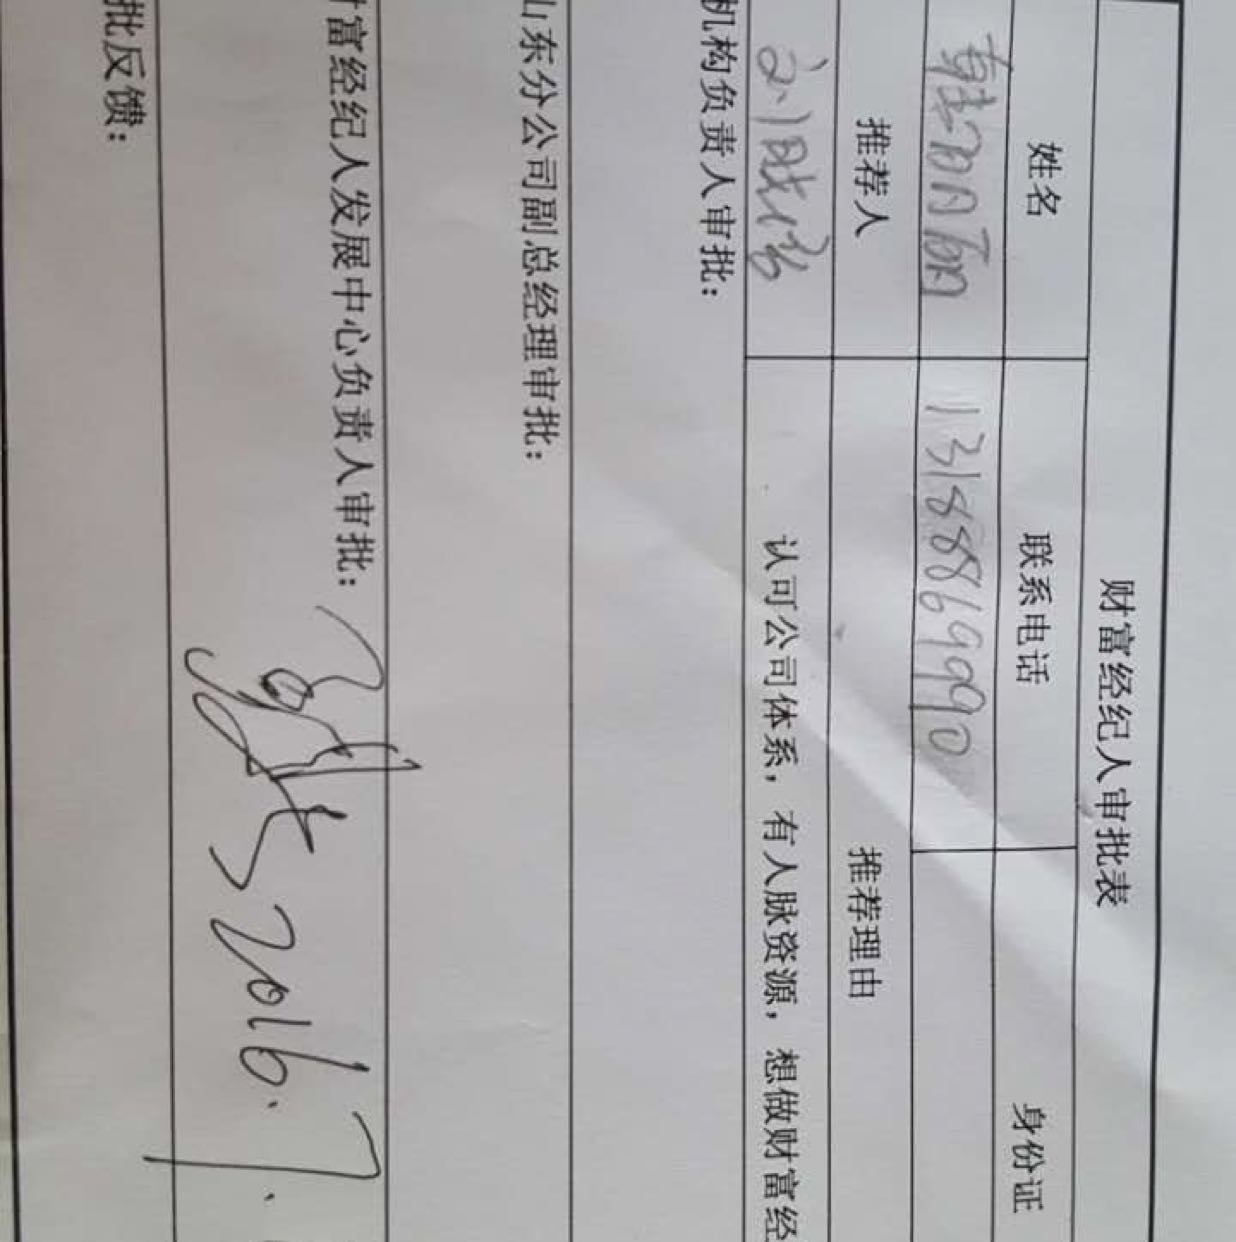 财富经纪人审批表
姓名 联系电话 身份证
韩明丽 13188869990
推荐人 推荐理由
认可公司体系，有人脉资源，想做财富经
机构负责人审批：
山东分公司副总经理审批：
财富经纪人发展中心负责人审批：
2016.7.
批反馈：